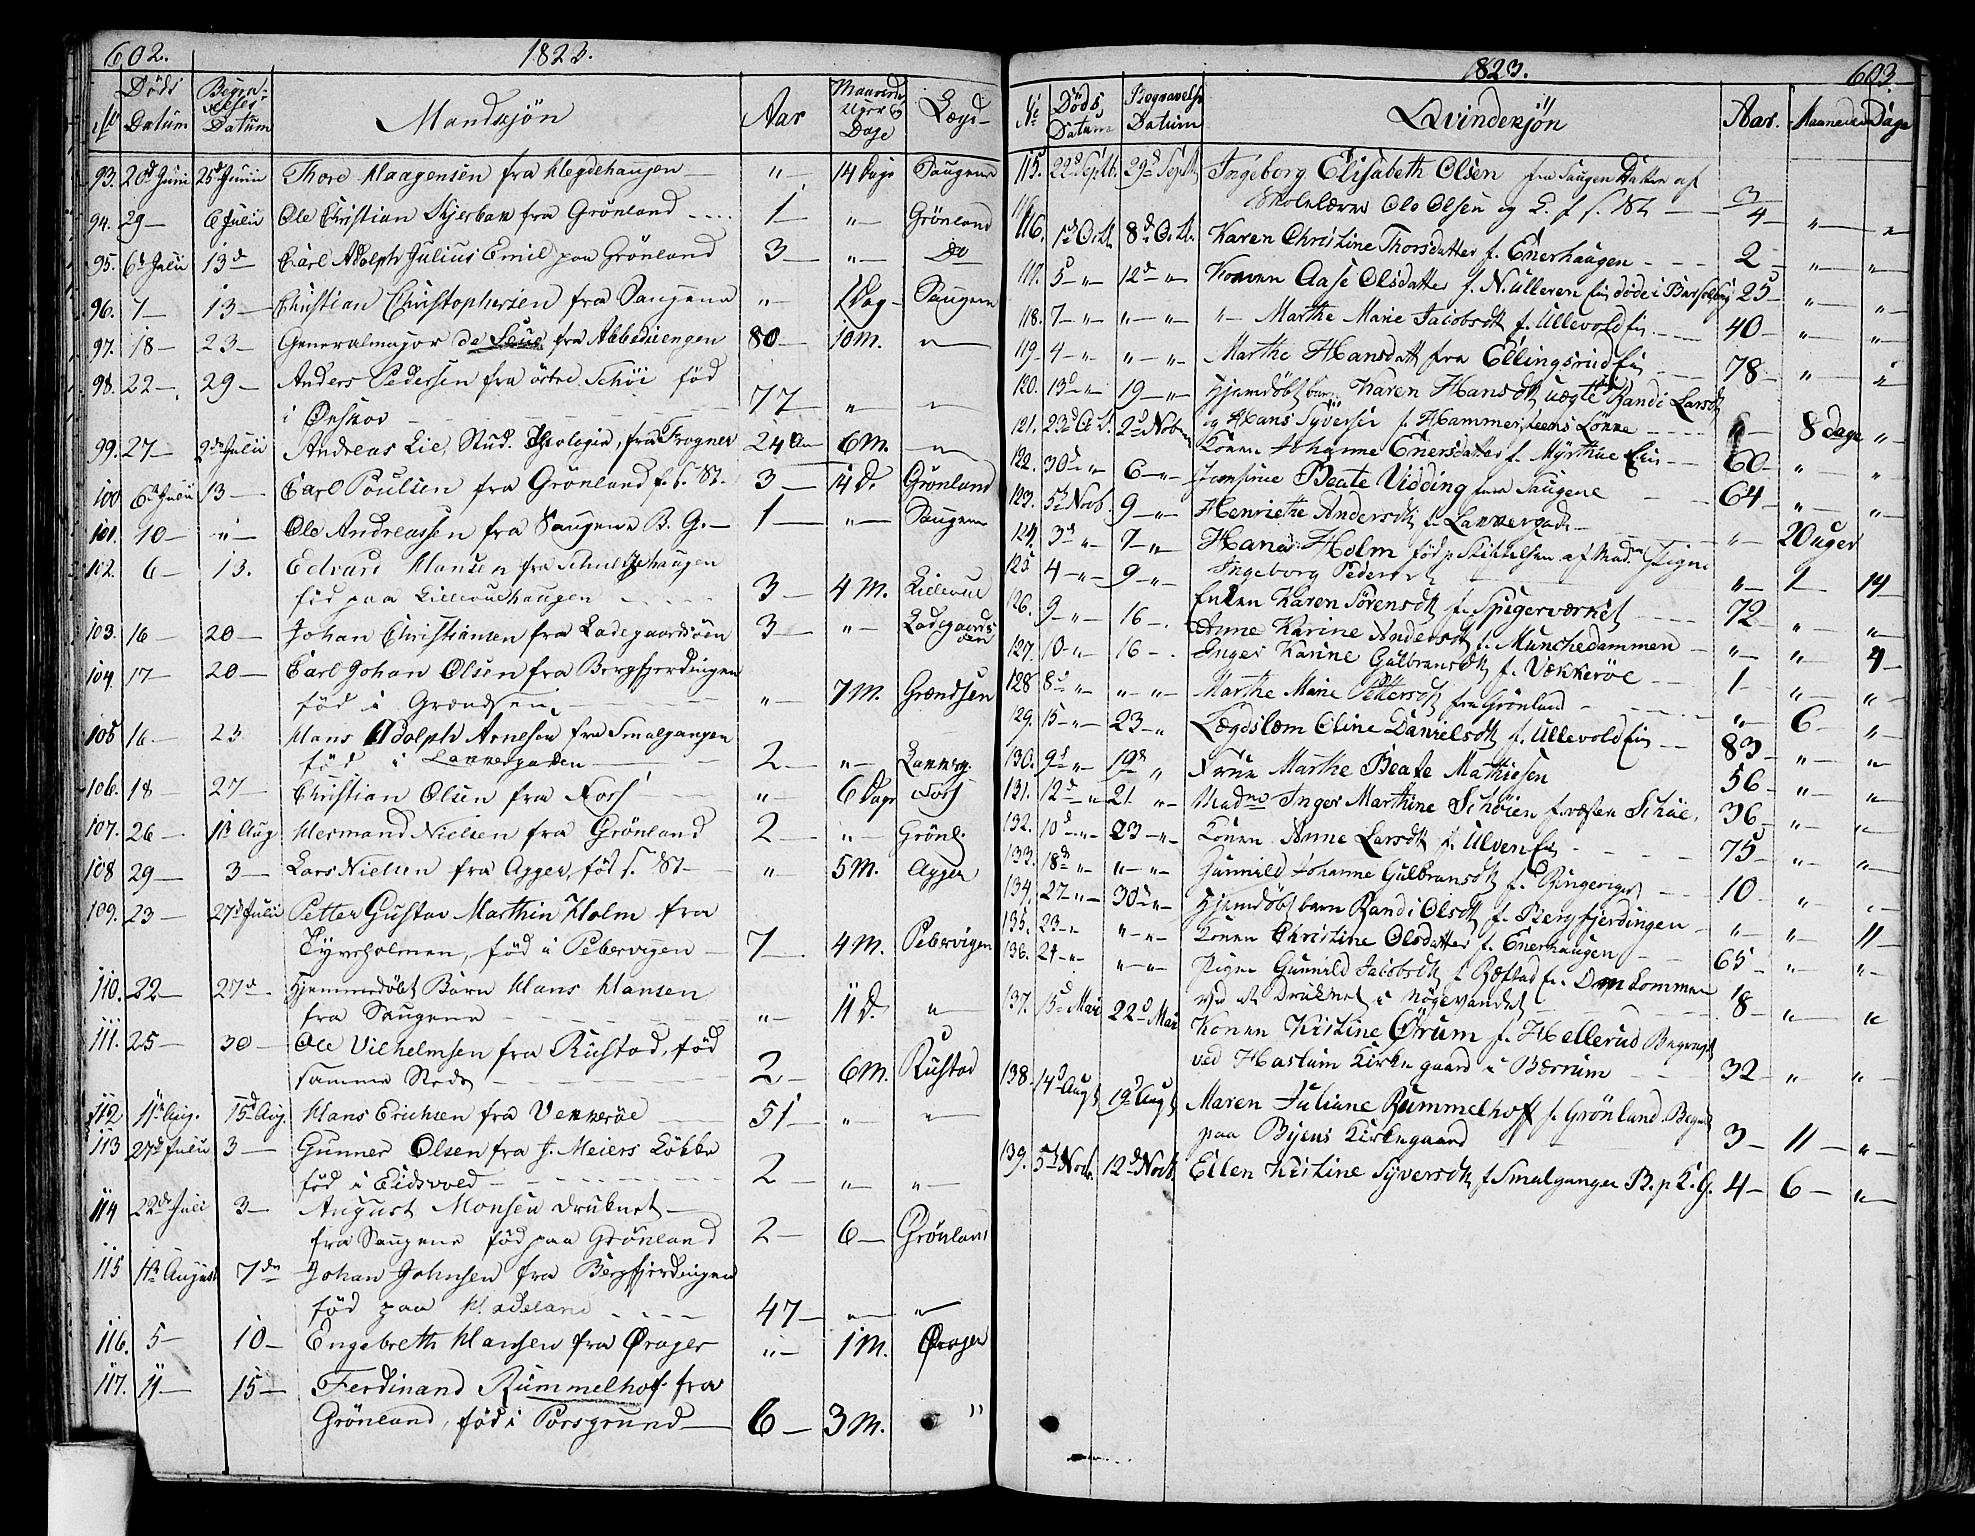 602. 1823.
No Döds Datum Begravelses Datum Mandkjön Aar Maaneder Uger & Dage Lægd
93. 20d Juni 25d Junii Thore Haagensen fra Hegdehaugen — „— 14 Dage Saugene
94. 29— 6 Julii Ole Christian Skjerbak fra Grönland 1— „— Grönland
95. 6d Julii 13d Carl Adolph Julius Emil paa Grönland 3— „— Do
96. 7— 13— Christian Christophersen fra Saugene „— 1 Dag— Saugene
97. 18— 23— Generalmajor de Seue fra Abbediengen 80— 10 M. „—
98. 22— 29— Anders Pedersen fra östre Schöi föd
i Ørskov 77— „— „—
99. 27— 2d Julii Andreas Lie, Stud. Theologie, fra Frogner 24 6 M. „—
100 6d Julii 13— Carl Poulsen fra Grönland f. s. St. 3— 14 D. Grönland
101. 10— „— Ole Andreassen fra Saugene B. G. — 1— „— Saugene
102. 6— 13. Edvard Hansen fra Schultzehaugen
föd paa Lillevuehaugen 3— 4 M. Lillevue
103. 16— 20— Johan Christiansen fra Ladegaardsöen 3— „— Ladegaardsöen
104. 17— 20— Carl Johan Olsen fra Bergfjerdingen
föd i Grændsen „— 7 M. Grændsen
105 16— 23 Hans Adolph Arnesen fra Smalgangen
föd i Lakkergaden 2— „— Lakkerg.
106. 18— 27— Christian Olsen fra Fors „— 6 Dage Fors
107. 26— 1h Aug Hermand Nielsen fra Grönland 2— „ Grönl.
108 29— 3— Lars Nielsen fra Agger, föd s. St— „ 5 M. Agger
109. 23— 27d Julii Petter Gustav Marthin Holm fra
Tyveholmen, föd i Pebervigen 7— 4 M. Pebervigen
110. 22— 27d Hjemmedöbt Barn Hans Hansen
fra Saugene „— 11 D. „—
111. 25— 30— Ole Vilhelmsen fra Rustad, föd
samme Steds 2— 6 M. Rustad
112 11h Aug. 15d Aug. Hans Erichsen fra Vekkeröe 51— „— „—
113 27d Julii 3— Gunner Olsen fra J. Meiers Lökke
föd i Eidsvold 2— „— „—
114 22d Juli 3— August Monsen druknet
fra Saugene föd paa Grönland 2— 6— Grönland
115 1h August 7de Johan Johnsen fra Bergfjerdingen
föd paa Hadeland 47— „— „—
116. 5— 10— Engebreth Hansen fra Ørager „— 1 M. Ørager
117. 11— 15— Ferdinand Rummelhof fra
Grönland, föd i Porsgrund 6— 3 M. „
1823. 603.
No Döds Datum Begravelse Datum Qvindekjön Aar. Maaneder Dage
115. 22d Septb. 29d Septb Ingeborg Elisabeth Olsen fra Saugen Datter af
Skolelærer Ole Olsen og L. f. s. St — 3/4 „— „
116. 1d Octb. 8d Octb. Karen Christine Thorsdatter f. Enerhaugen 2— „— „—
117. 5— „— 12d „— Konen Aase Olsdatter f. N. Ulleren Eie döde i Barselseng 25— „— „—
118. 7— „— „— „— „— Marthe Marie Jacobsdtt f. Ullevold Eie 40— „ „—
119. 4— „— „— „— Marthe Hansdatt fra Ellingsrud Eie 78— „— „
120. 13d „— 19— „— Hjemdöbt barn Karen Hansdtt uægte Randi Larsdt
og Hans Syversen f. Hammersteens Lökke — 8 dage „—
121. 23d Oct. 2d Novbr Konen Johanne Enersdatter f. Myrthue Eie 60— „— „—
122. 30d „— 6— „— Jomfrue Beate Vidding fra Saugene 64— „— „—
123. 5h Novb. 9— „— Henriette Andersdtt f. Lakkergade „— 20 uger
124. 3d „— 7— „— Hana Holm föd p. Stiftelsen af Mad.
125 4— „— 9— „— Ingeborg Pedersdt „— 1— 14
126. 9— „— 16—. Enken Karen Sörensdtt f. Spigerverket 72— „— „—
Anne Karine Andersdtt f. Munchedammen „— „— 4—
127. 10— „— 16—. Inger Karine Gulbransdtt f. Vækkeröe 1— „— „—
128 8d „— „— „— Marthe Marie Pettersdt fra Grönland „— 6— „—
129. 15— „— 23— „ Lægdslem Eline Danielsdtt f. Ullevold Eie 83— „— „—
130. 9d „— 19d „ Fruen Marthe Beate Mathiesen 56— „— „—
131. 12d „— 21 „— Madme Inger Marthine Schöien f. vesten Schöie. 36— „— „—
132. 10d „— 23— „— Konen Anne Larsdt f. Ulven Eie 75— „— „—
133. 18d „— „— „— Gunnild Johanne Gulbransdtt f. Ringeriget 10— „— „—
134. 27— „— 30d „— Hjemdöbt barn Randi Olsdt f. Bergfjerdingen „— „— 11—
135. 23— „ „— „— Konen Christine Olsdatter f. Enerhaugen 65— „— „—
136. 21— „— „— „— Pigen Gunnild Jacobsdtt f. Refstad Eie Omkommen
ved at Druknet i Nögevandet 18— „— „
137. 15d Mai 22d Mai Konen Kistine Ørum f. Hellerud Begravet
ved Haslum Kirkegaard i Bærum 32— „— „—
138. 14d Augst 19d Augst Maren Juliane Rummelhoff f. Grönland Begr.
paa Byens Kirkegaard 3— 11— „—
139. 5h Novbr. 12d Novbr Ellen Kistine Syversdtt f. Smalgangen B. p. K. G. 4— 6— „—